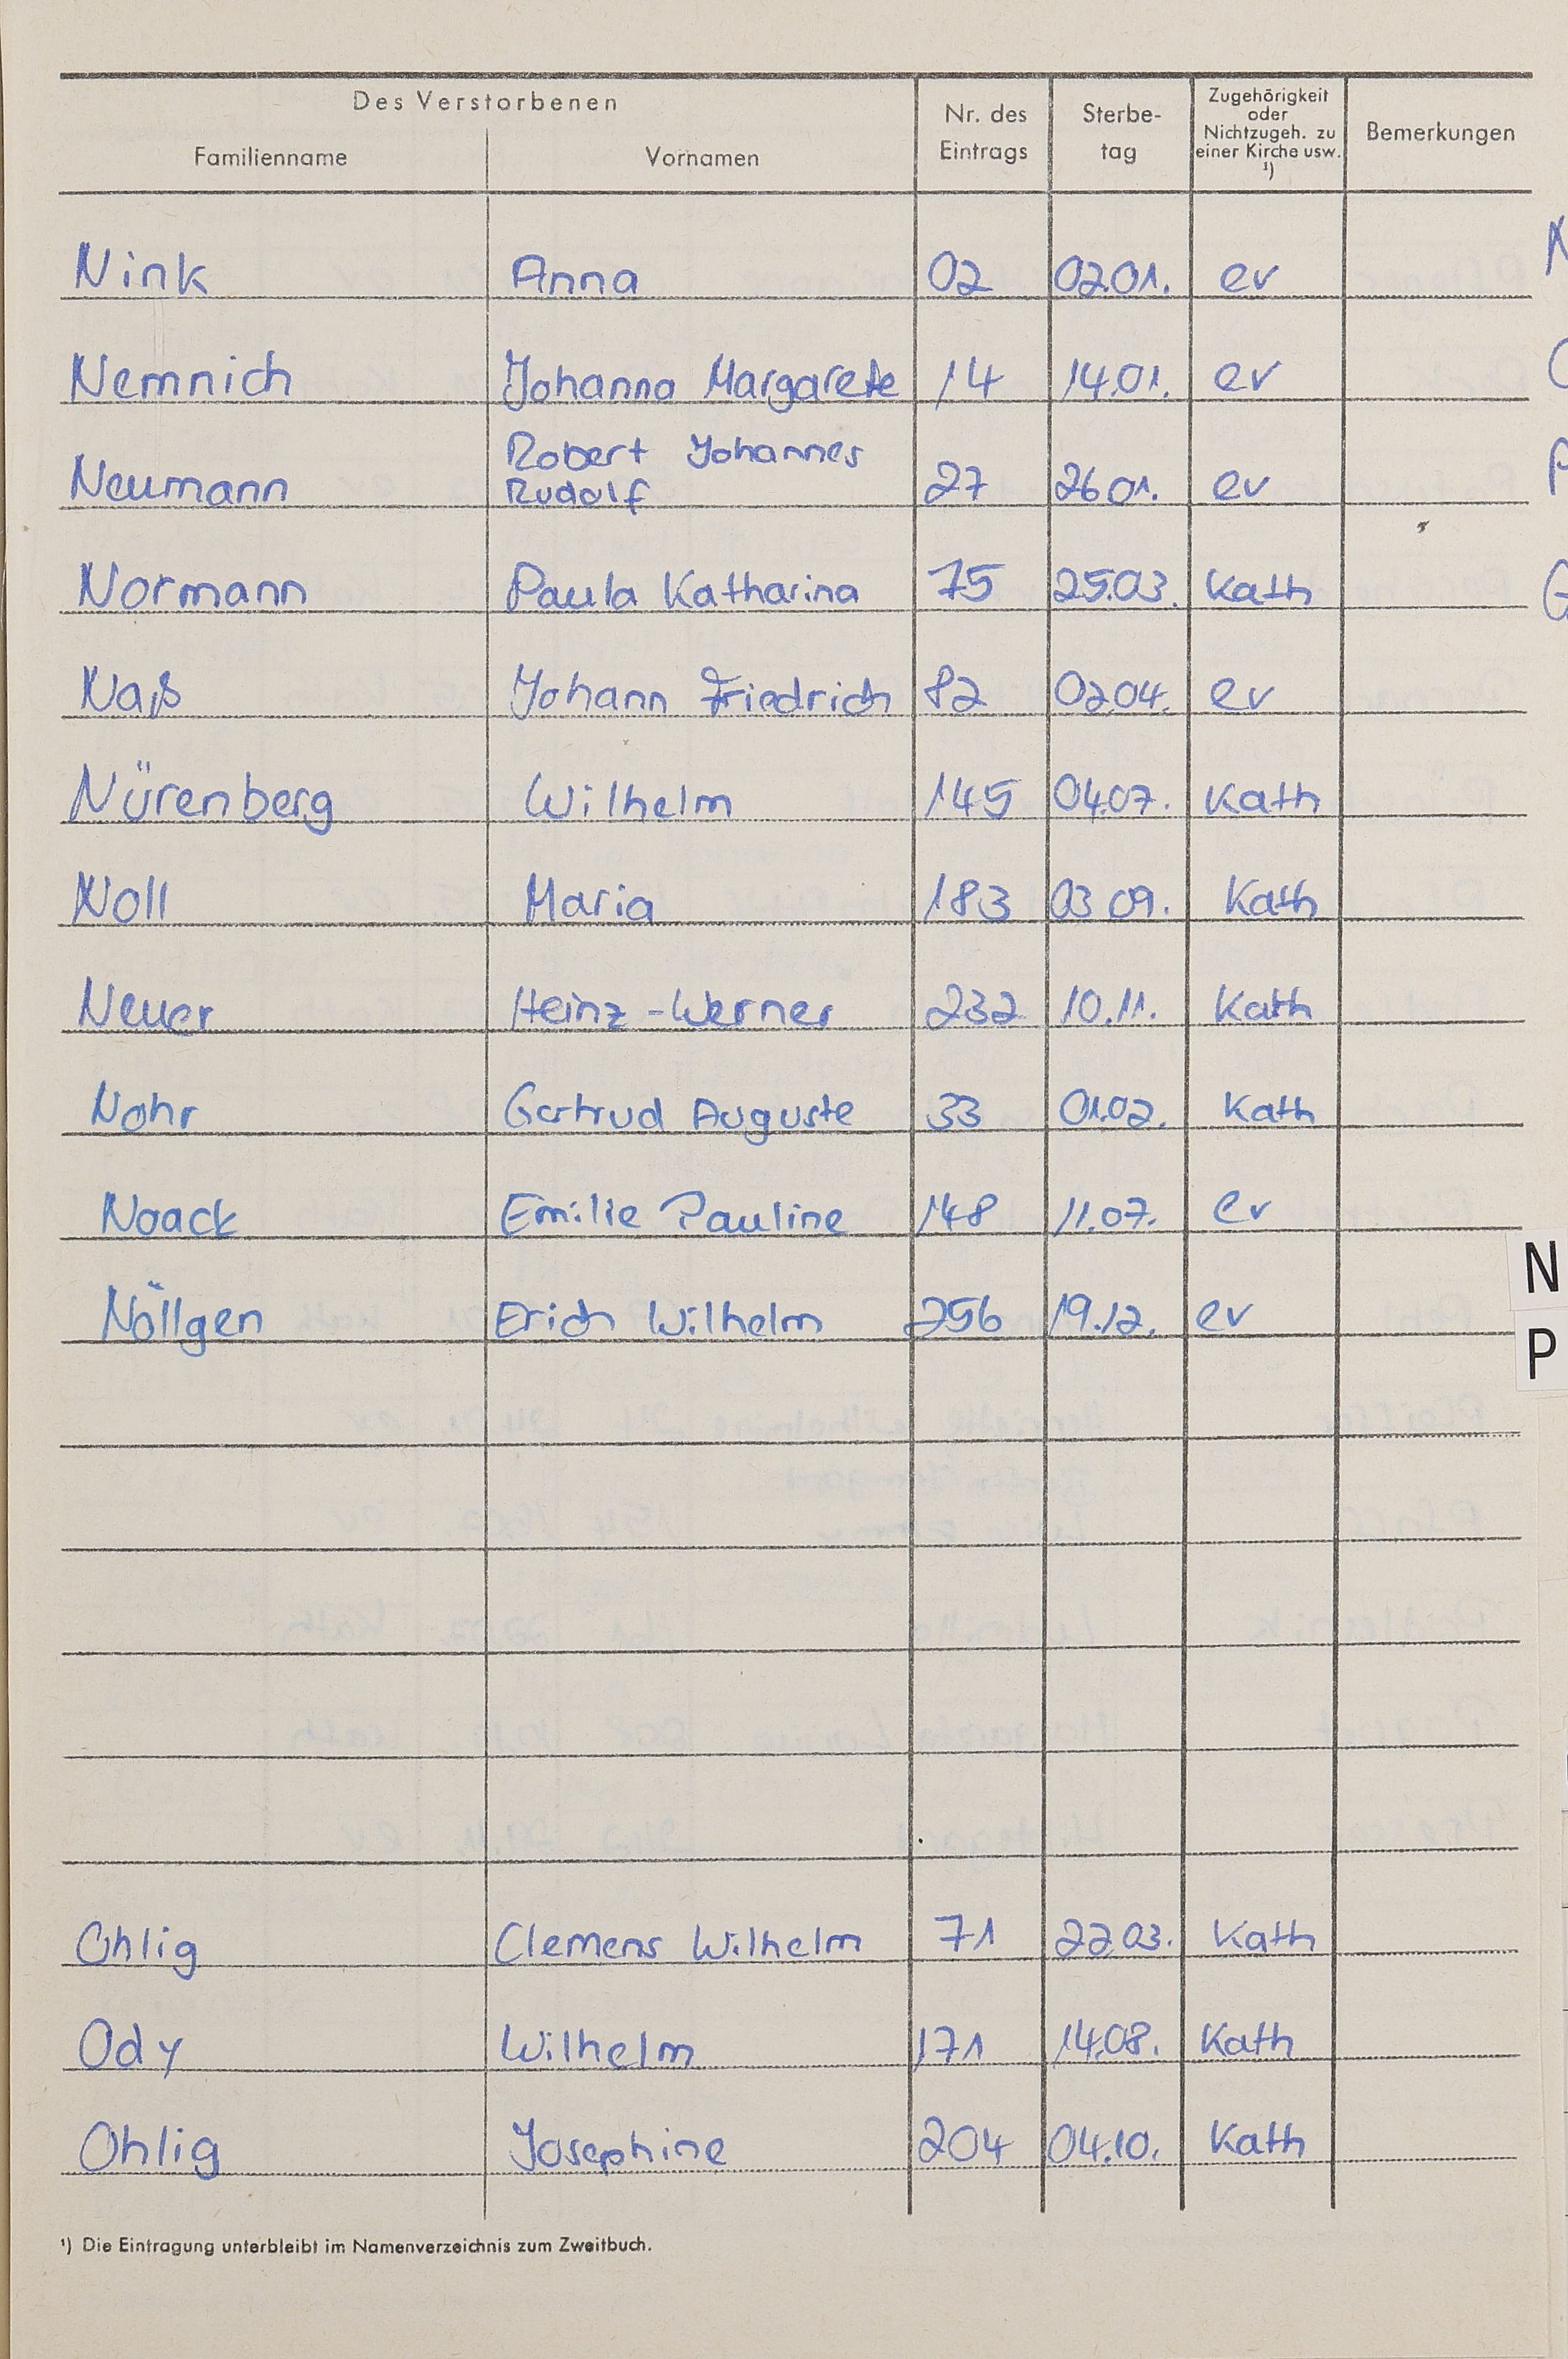 Des Verstorbenen
Familienname Vornamen Nr. des Eintrags Sterbe-tag Zugehörigkeit oder Nichtzugeh. zu einer Kirche usw. ¹) Bemerkungen
Nink Anna 02 02.01. ev
Nemnich Johanna Margarete 14 14.01. ev
Robert Johannes
Neumann Rudolf 27 26.01. ev
Normann Paula Katharina 75 25.03. Kath
Naß Johann Friedrich 82 02.04. ev
Nürenberg Wilhelm 145 04.07. Kath
Noll Maria 183 03 09. Kath
Neuer Heinz-Werner 232 10.11. Kath
Nohr Gertrud Auguste 33 01.02. Kath
Noack Emilie Pauline 148 11.07. ev
Nöllgen Erich Wilhelm 256 19.12. ev
N
P
Ohlig Clemens Wilhelm 71 22.03. Kath
Ody Wilhelm 171 14.08. Kath
Ohlig Josephine 204 04.10. Kath
¹) Die Eintragung unterbleibt im Namenverzeichnis zum Zweitbuch.